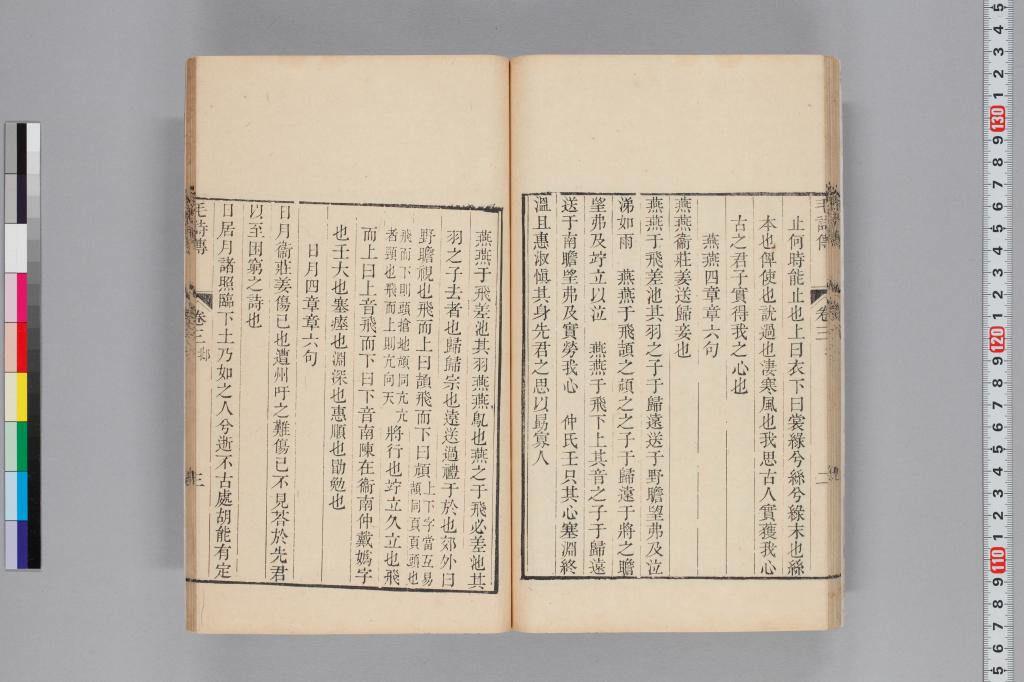 毛詩傳
卷三
二
止何時能止也上曰衣下曰裳綠兮絲兮綠末也絲
本也俾使也訧過也淒寒風也我思古人實獲我心
古之君子實得我之心也
燕燕四章章六句
燕燕衞莊姜送歸妾也
燕燕于飛差池其羽之子于歸遠送于野瞻望弗及泣
涕如雨 燕燕于飛頡之頏之之子于歸遠于將之瞻
望弗及竚立以泣 燕燕于飛下上其音之子于歸遠
送于南瞻望弗及實勞我心 仲氏壬只其心塞淵終
溫且惠淑愼其身先君之思以勗寡人
燕燕于飛差池其羽燕燕鳦也燕之于飛必差池其
羽之子去者也歸歸宗也遠送過禮于於也郊外曰
野瞻視也飛而上曰頡飛而下曰頏上下字當互易頡同頁頁頭也
飛而下則頭搶地頏同亢亢者頸也飛而上則亢向天 將行也竚立久立也飛
而上曰上音飛而下曰下音南陳在衞南仲戴嬀字
也壬大也塞瘞也淵深也惠順也勖勉也
日月四章章六句
日月衞莊姜傷己也遭州吁之難傷己不見荅於先君
以至困窮之詩也
日居月諸照臨下土乃如之人兮逝不古處胡能有定
毛詩專
卷三 邶
三
5
4
3
2
1
130
9
8
7
6
5
4
3
2
1
120
9
8
7
6
5
4
3
2
1
110
9
8
7
6
5